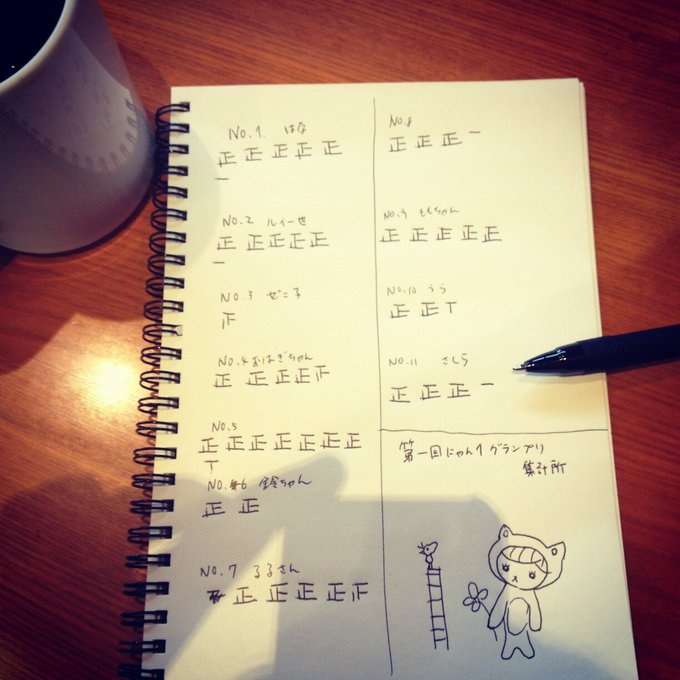 No.1. はな
正 正 正 正 正
一
No.2 ルイ一世
正 正 正 正 正
一
No.3
No.4 おはぎちゃん
正 正 正 正 下
No.5
正 正 正 正 正 正 正
T
No.6 鈴ちゃん
正 正
No.7 るるさん
正 正 正 正
No.8
正 正 正 一
No.9 ももちゃん
正 正 正 正 正
No.10 うら
正 正 T
No.11 さくら
正 正 正 一
第一回にゃん1グランプリ
集計所